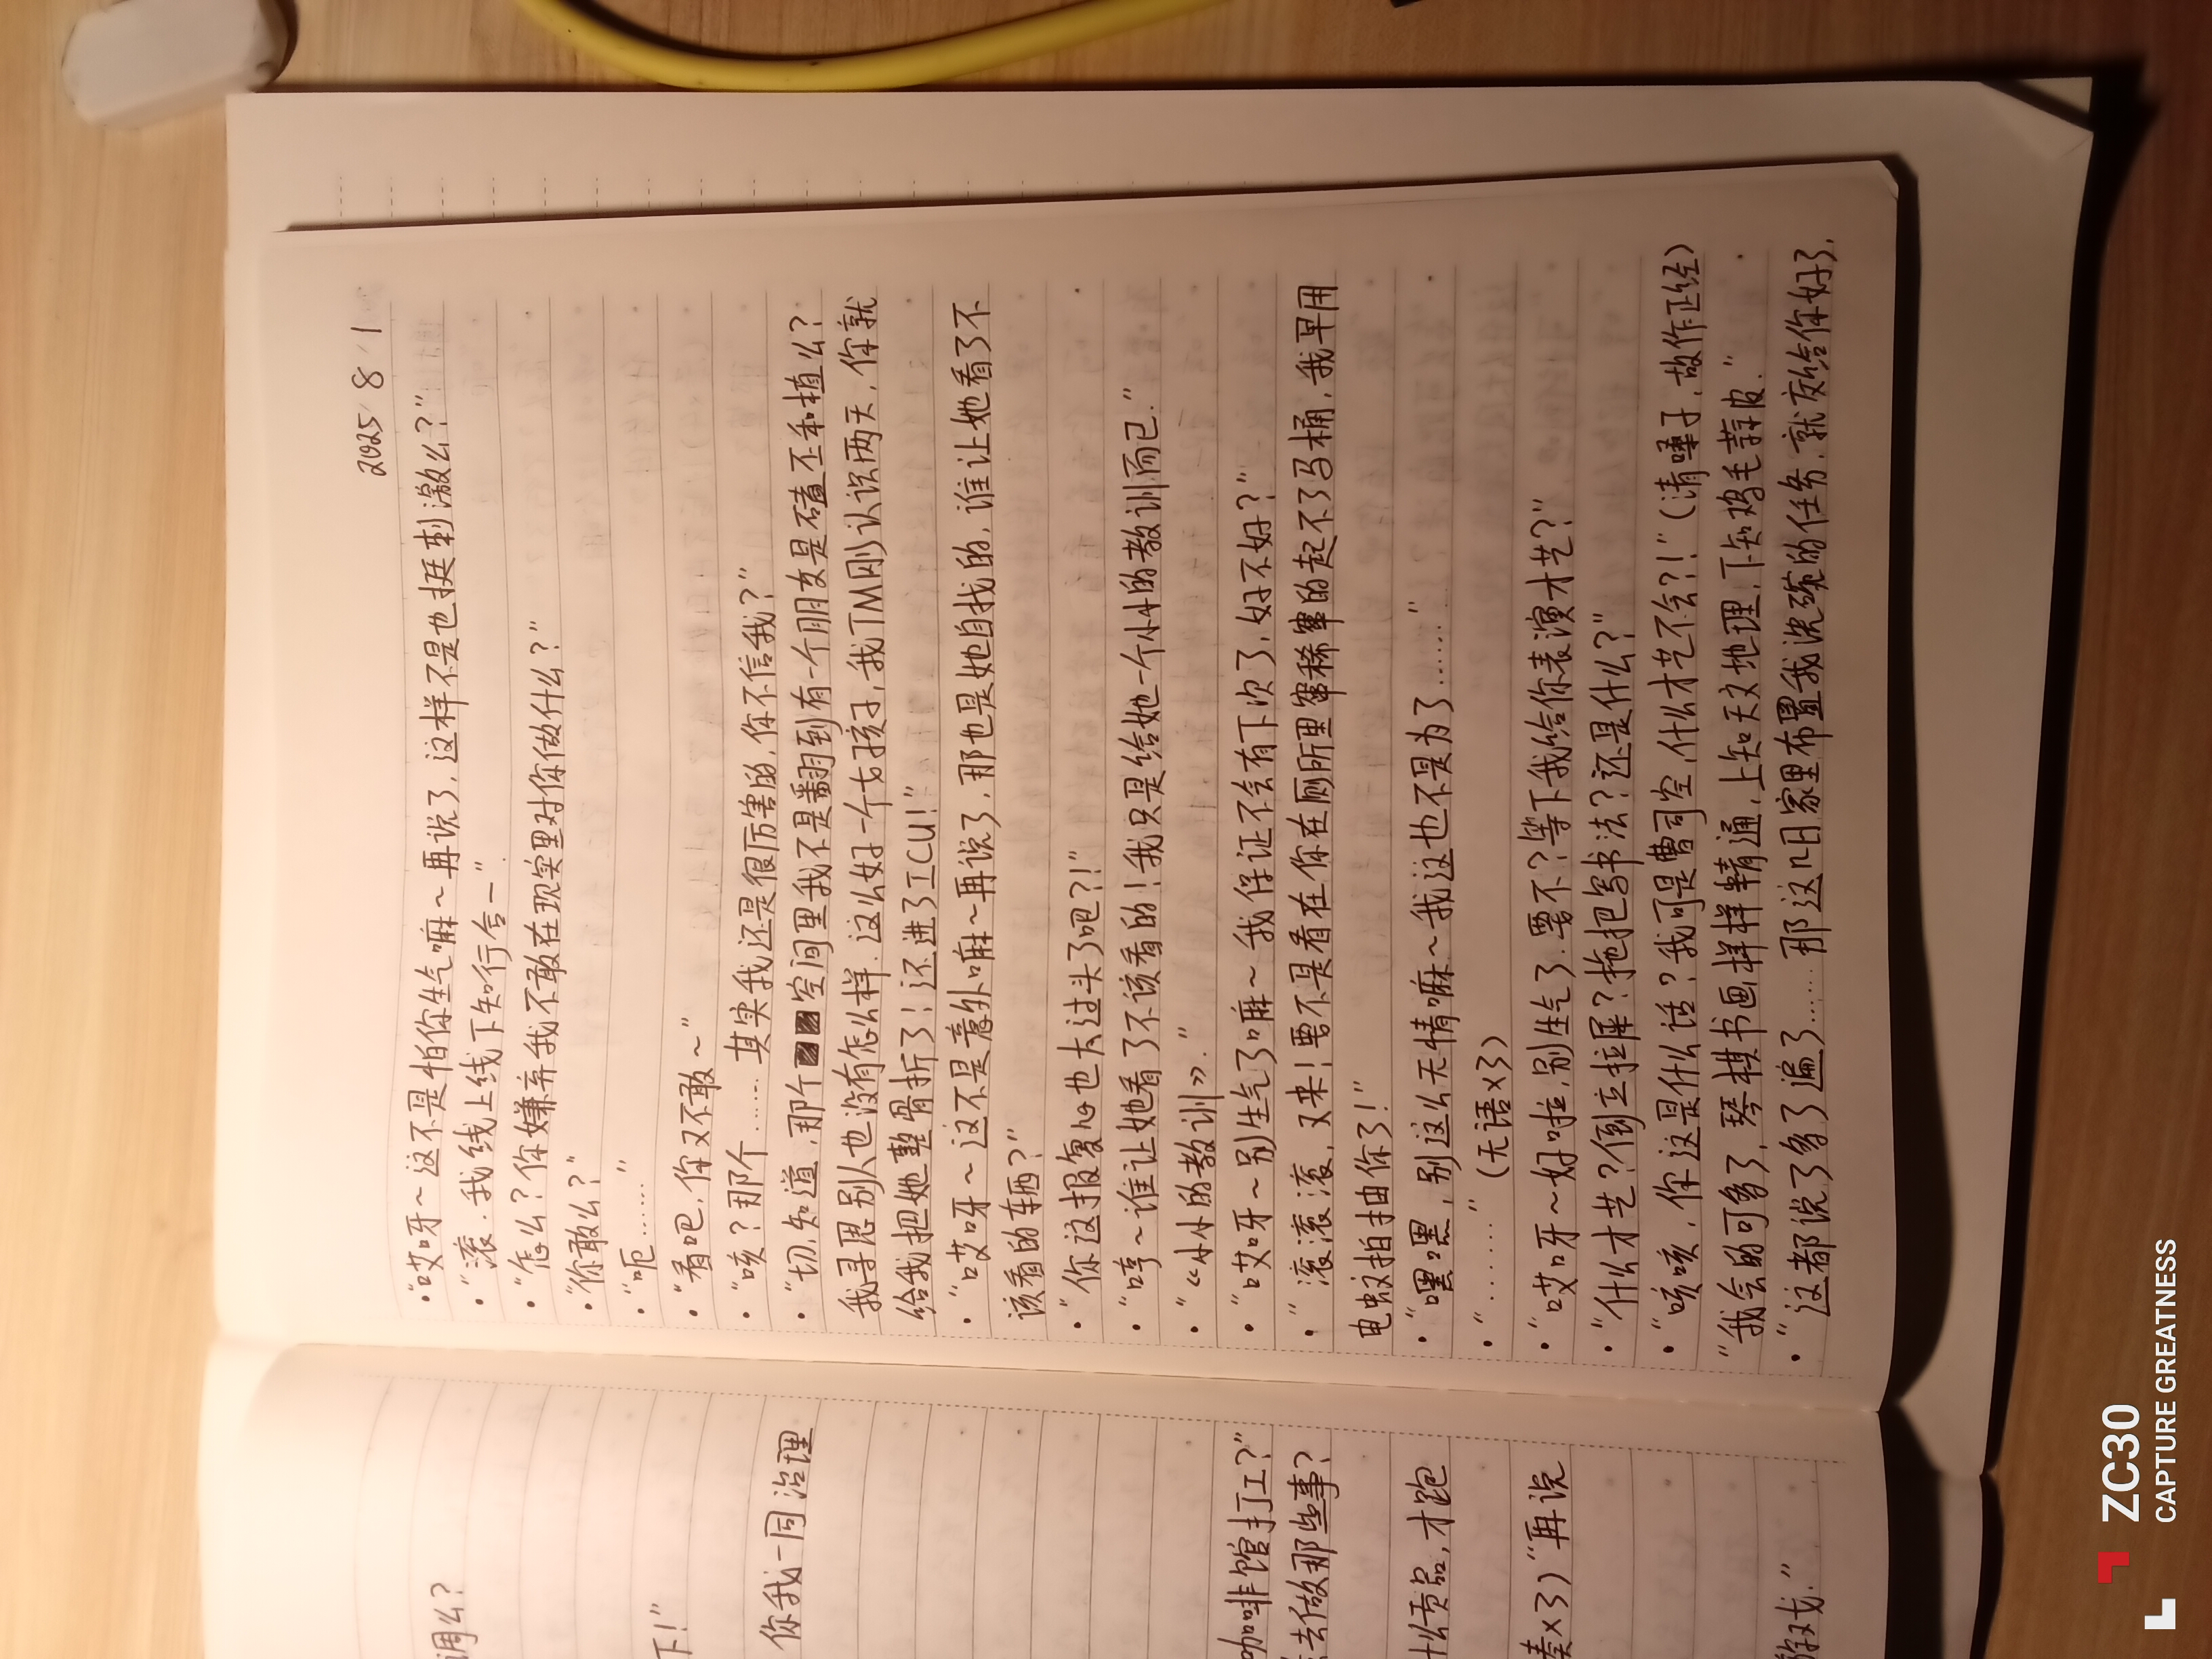 2025/8/1
·“哎呀～这不是怕你生气嘛～再说了，这样不是也挺刺激么？”
·“滚，我线上线下知行合一”
·“怎么？你嫌弃我不敢在现实里对你做什么？”
·“你敢么？”
·“呃……”
·“看吧，你又不敢～”
·“咳？那个……其实我还是很厉害的，你不信我？”
·“切，知道，那个空间里我不是翻到有一个朋友是磕丕和植么？
我寻思别人也没有怎么样，这么好一个女孩子，我TM刚认识两天，你就
给我把她整骨折了！还进了ICU！”
·“哎呀～这不是意外嘛～再说了，那也是她自找的，谁让她看了不
该看的东西？”
·“你这报复心也太过头了吧？！”
·“哼～谁让她看了不该看的！我只是给她一个小小的教训而已。”
·“《小小的教训》。”
·“哎呀～别生气了嘛～我保证不会有下次了，好不好？”
·“滚滚滚，又来！要不是看在你在厕所里窜稀窜的起不了马桶，我早用
电蚊拍抽你了！”
·“嘿嘿，别这么无情嘛～我这也不是为了……”
·“………”（无语×3）
·“哎呀～好啦，别生气了，要不？等下我给你表演才艺？”
·“什么才艺？倒立拉屎？拖把写书法？还是什么？”
·“咳咳，你这是什么话？我可是曹司空，什么才艺不会？！”（清嗓子，故作正经）
“我会的可多了，琴棋书画样样精通，上知天文地理，下知鸡毛蒜皮。”
·“这都说了多了遍了……那这几日家里布置我洗碗的任务，就交给你好了，
调么？
下！”
你我一同治理
咖啡馆打工？”
去做那些事？
什么贡品，才跑
奏×3）“再说
游戏。”
ZC30
CAPTURE GREATNESS